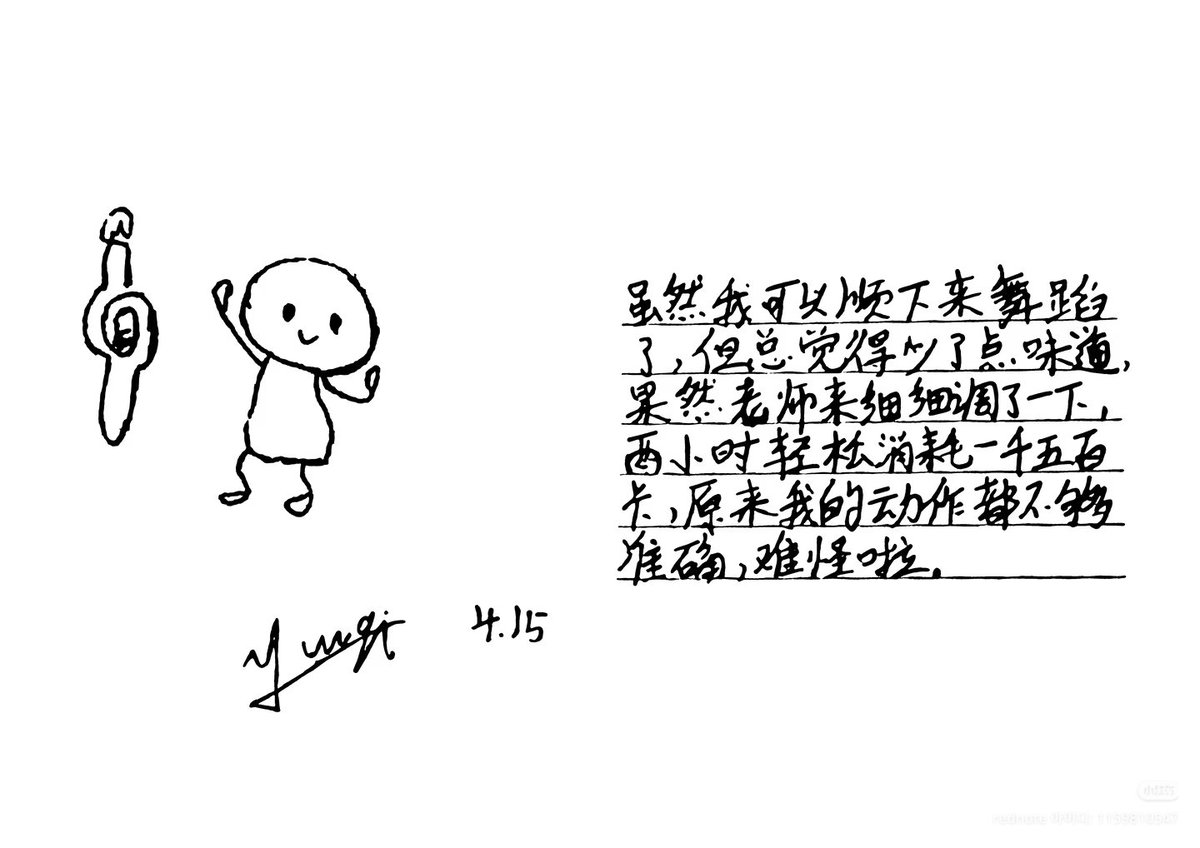 虽然我可以顺下来舞蹈
了，但总觉得少了点味道，
果然老师来细细调了一下，
两小时轻松消耗一千五百
卡，原来我的动作都不够
准确，难怪啦。
4.15
小红书